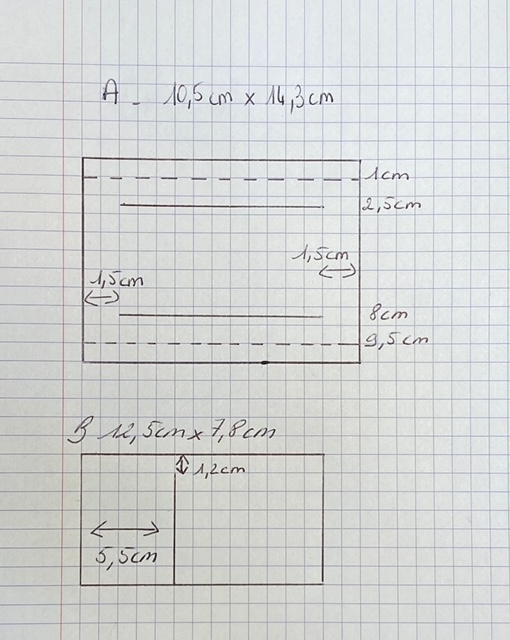 A - 10,5cm x 14,3cm
1cm
2,5cm
1,5cm
1,5cm
8cm
9,5cm
B 12,5cm x 7,8cm
1,2cm
5,5cm